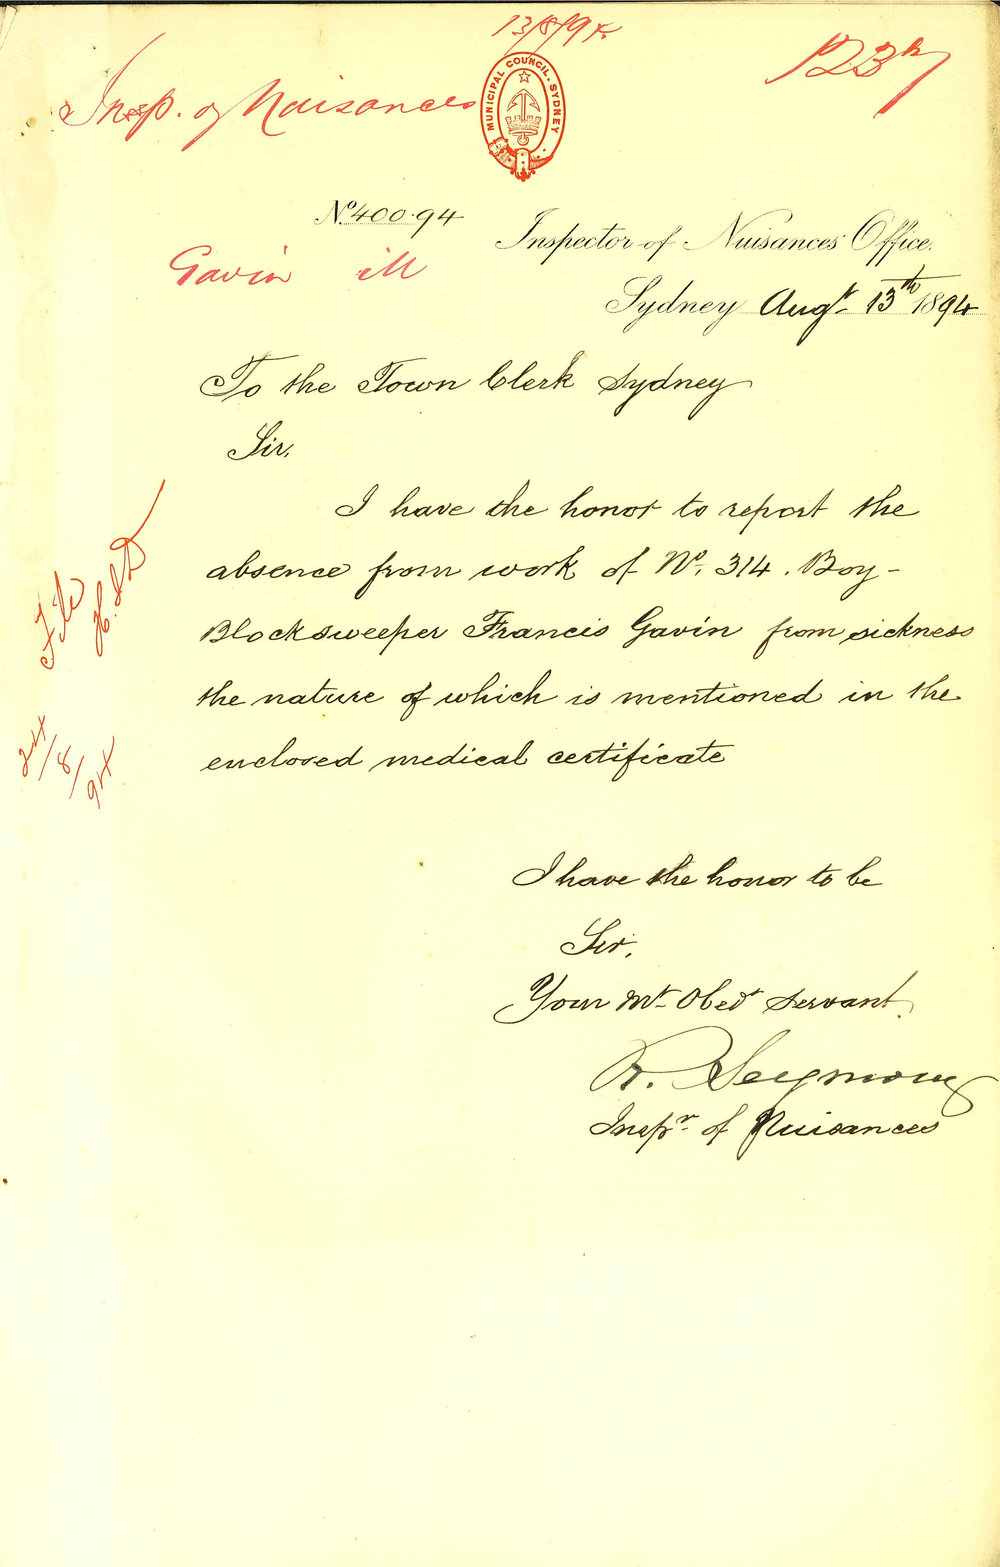 13/8/94
Insp. of Nuisances
MUNICIPAL COUNCIL. SYDNEY
No. 400.94
Inspector of Nuisances Office.
Gavin ill
Sydney Augt. 13th 1894
To the Town Clerk Sydney
Sir.
I have the honor to report the
absence from work of No. 314. Boy-
Blocksweeper Francis Gavin from sickness
the nature of which is mentioned in the
enclosed medical certificate
File
24/8/94
I have the honor to be
Sir.
Your Mt. Obedt servant
R. Seymour
Inspr. of Nuisances